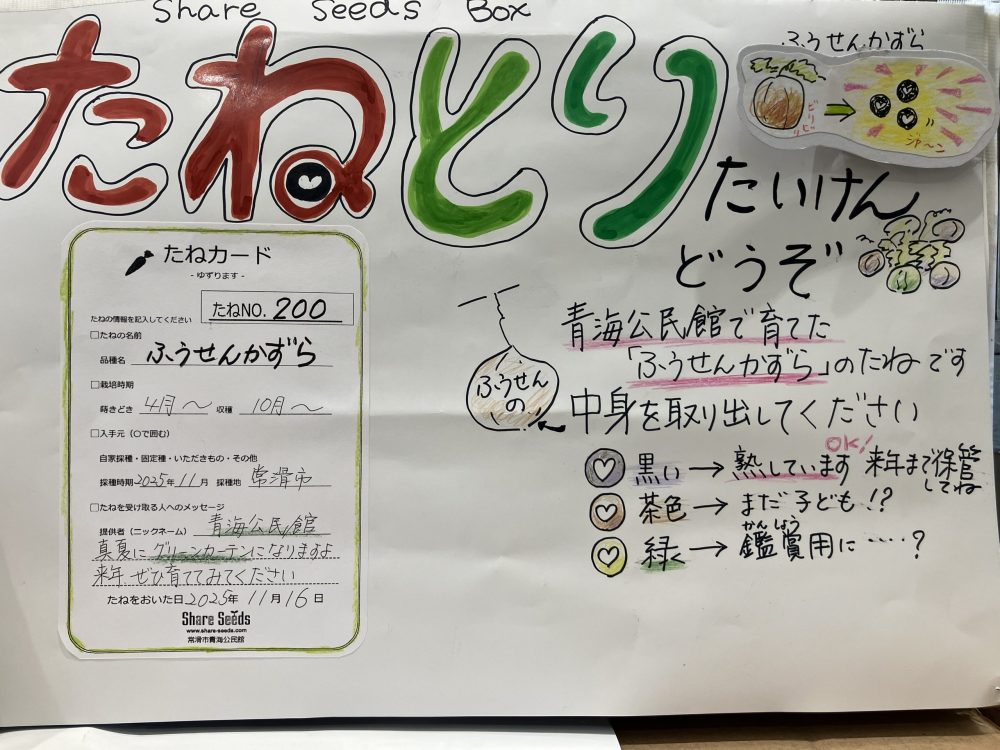 Share Seeds Box
たねとり
たいけん
どうぞ
ふうせんかずら
ビリビリ
ジャーン
たねカード
- ゆずります -
たねの情報を記入してください
たねNO. 200
□たねの名前
品種名 ふうせんかずら
□栽培時期
蒔きどき 4月〜 収穫 10月〜
□入手元（○で囲む）
自家採種・固定種・いただきもの・その他
採種時期 2025年11月 採種地 常滑市
□たねを受け取る人へのメッセージ
提供者（ニックネーム） 青海公民館
真夏にグリーンカーテンになりますよ
来年 ぜひ育ててみてください
たねをおいた日 2025年 11月16日
Share Seeds
www.share-seeds.com
常滑市青海公民館
青海公民館で育てた
「ふうせんかずら」のたねです
ふうせんの
中身を取り出してください
黒い→熟しています OK! 来年まで保管してね
茶色→まだ子ども!?
緑く→鑑賞用に……?
かんしょう